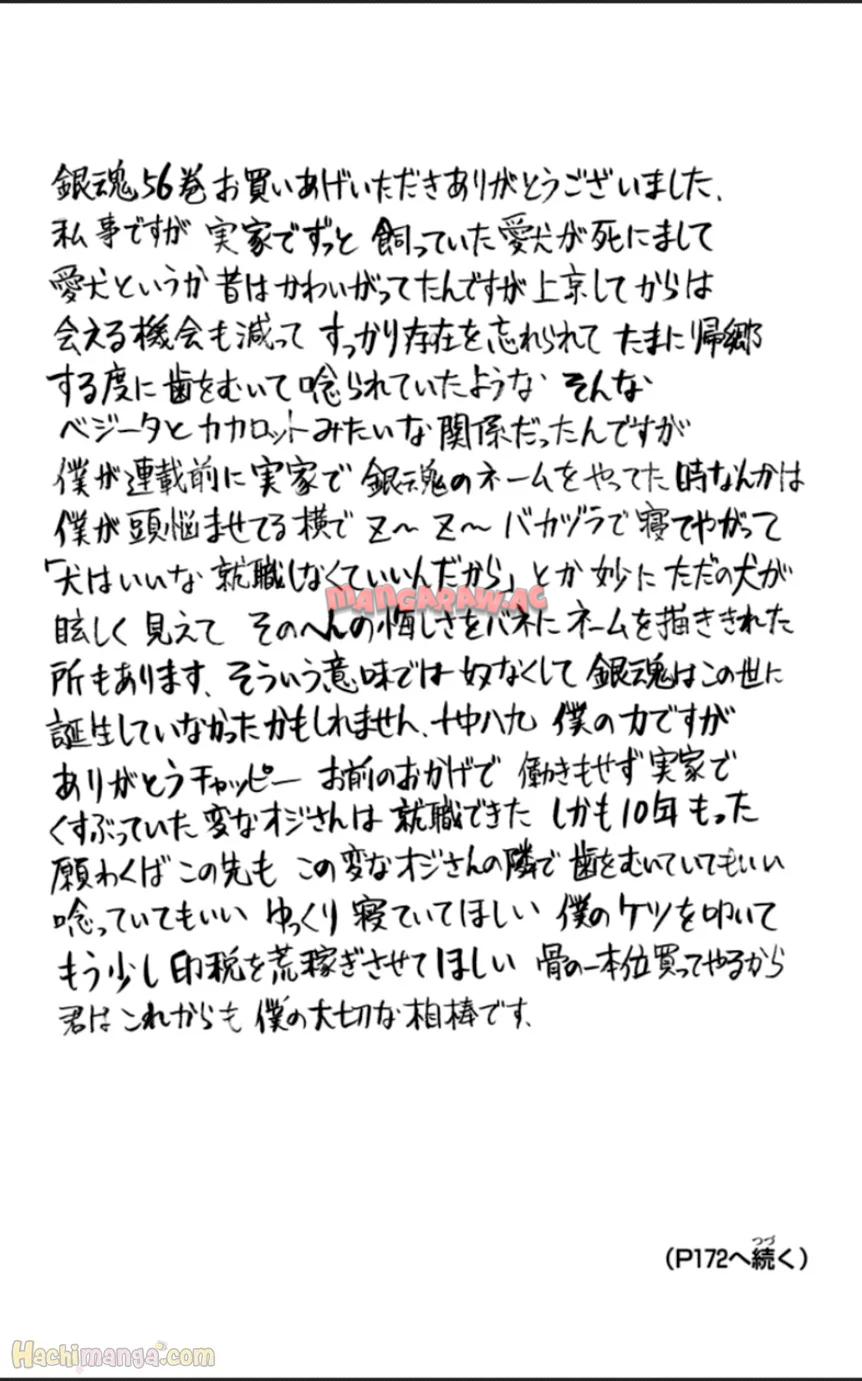 銀魂56巻お買いあげいただきありがとうございました、
私事ですが 実家でずっと 飼っていた愛犬が死にまして
愛犬というか昔はかわいがってたんですが上京してからは
会える機会も減って すっかり存在を忘れられて たまに帰郷
する度に歯をむいて唸られていたような そんな
ベジータとカカロットみたいな関係だったんですが
僕が連載前に実家で 銀魂のネームをやってた時なんかは
僕が頭悩ませてる横で Z〜 Z〜 バカヅラで寝てやがって
「犬はいいな 就職しなくていいんだから」とか妙にただの犬が
眩しく見えて そのへんの悔しさをバネにネームを描ききれた
所もあります、そういう意味では奴なくして銀魂はこの世に
誕生していなかったかもしれません、十中八九 僕の力ですが
ありがとうチャッピー お前のおかげで 働きもせず実家で
くすぶっていた変なオジさんは就職できた しかも10年もった
願わくばこの先も この変なオジさんの隣で歯をむいていてもいい
唸っていてもいい ゆっくり寝ていてほしい 僕のケツを叩いて
もう少し印税を荒稼ぎさせてほしい 骨の一本位買ってやるから
君はこれからも 僕の大切な相棒です、
MANGARAW.AC
(P172へ続く)
つづ
Hachimanga.com